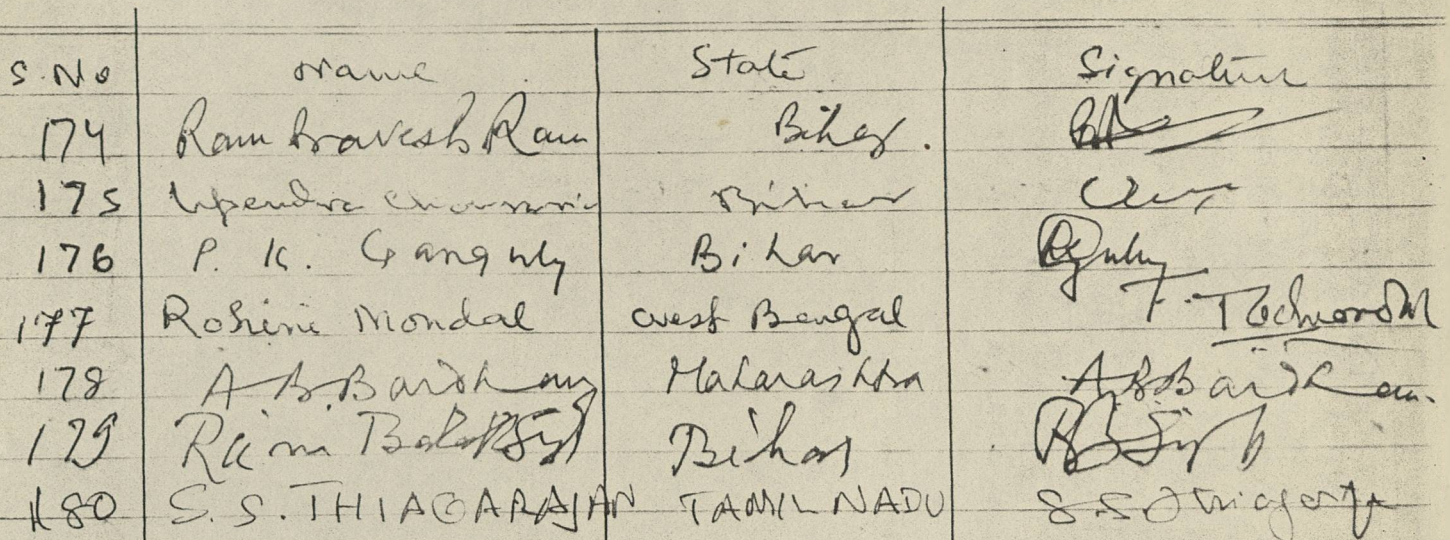 S. No Name State Signature
174 Ram Pravesh Ram Bihar.
175 Upendra Bihar
176 P. K. Ganguly Bihar
177 Rohini Mondal West Bengal
178 A B. Bardhan Maharashtra A B Bardhan
179 Ram Balak Singh Bihar R B Singh
180 S. S. THIAGARAJAN TAMIL NADU S S Thiagaraja